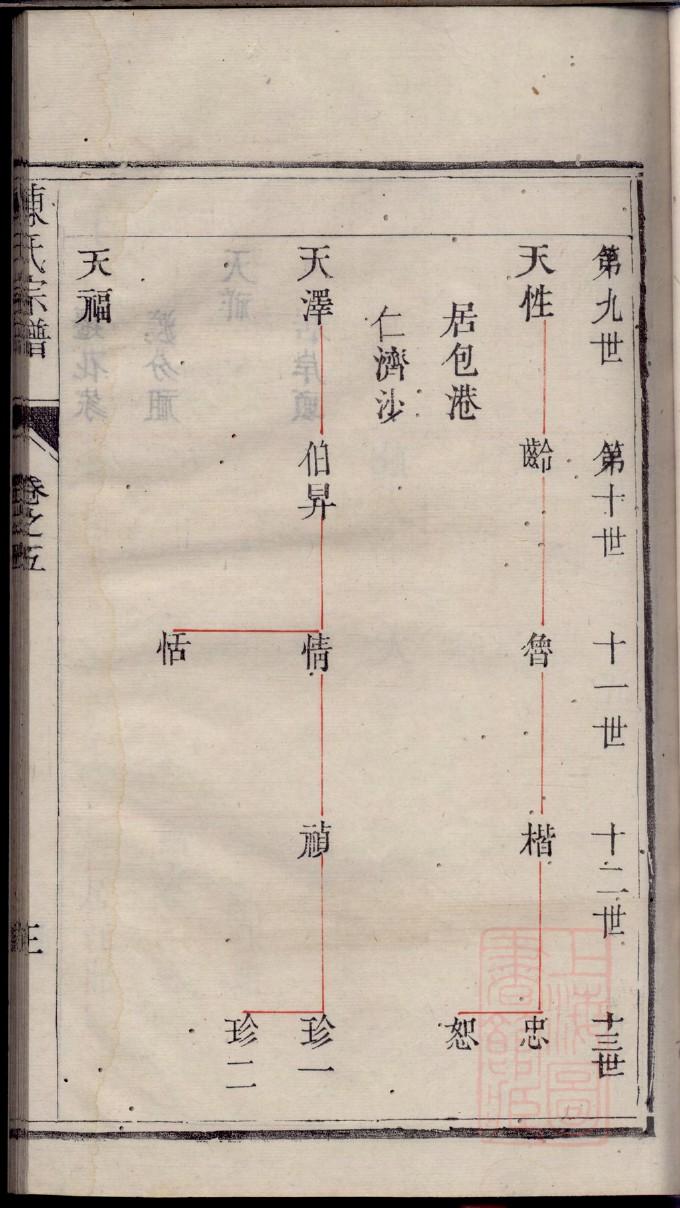 第九世 第十世 十一世 十二世 十三世
天性 齡 魯 楷 忠
居包港 恕
仁濟沙
天澤 伯昇 情 禎 珍一
珍二
恬
天福
陳氏宗譜 卷之五